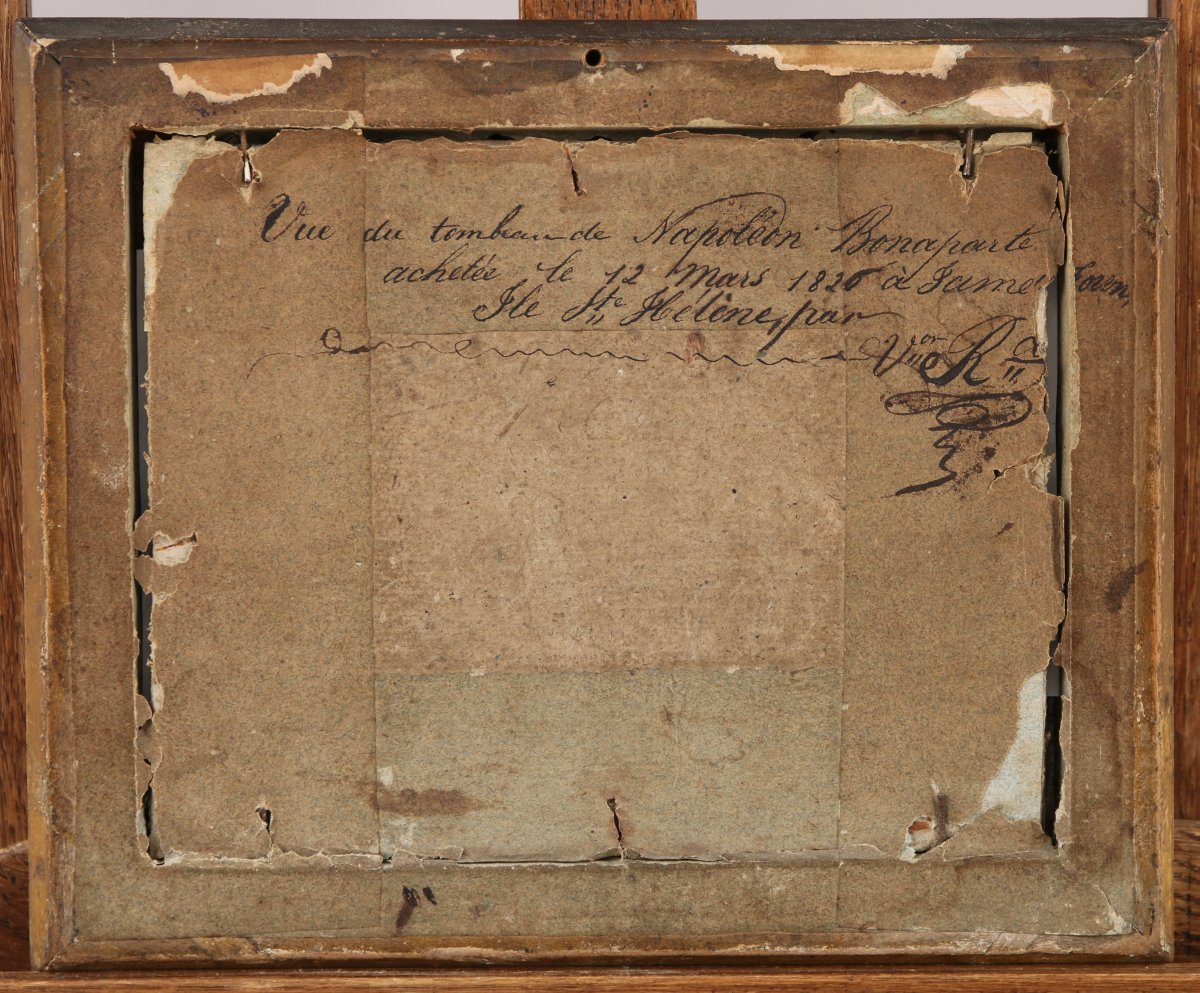 Vue du tombeau de Napoléon Bonaparte
achetée le 12 Mars 1826 à James Town,
Ile Ste Hélène, par
Vor R